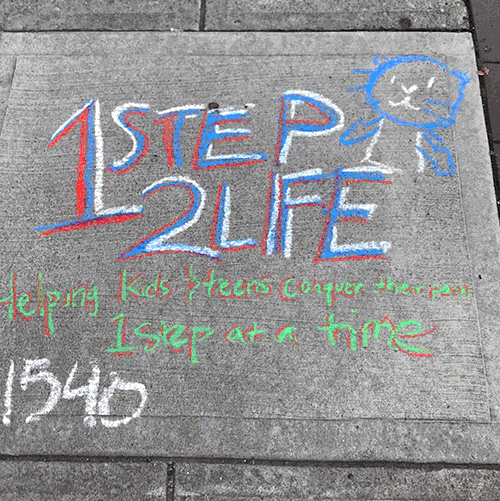 1STEP
2LIFE
Helping Kids & teens conquer their pain
1 step at a time
1540